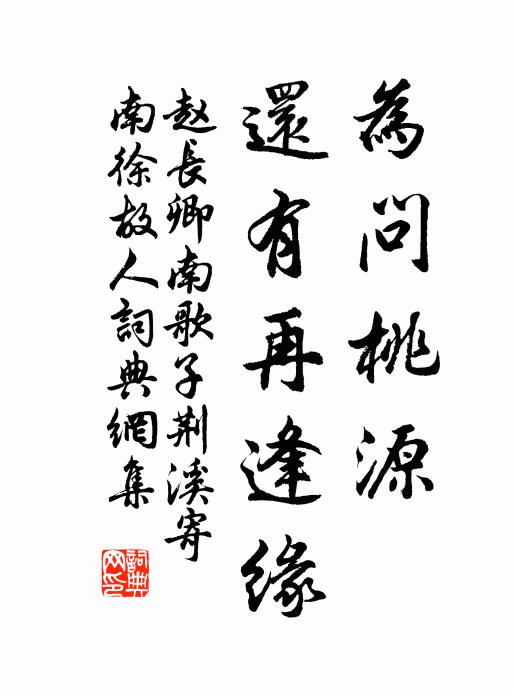 為問桃源
還有再逢緣
赵長卿南歌子荆溪寄
南徐故人詞典網集
詞典网印